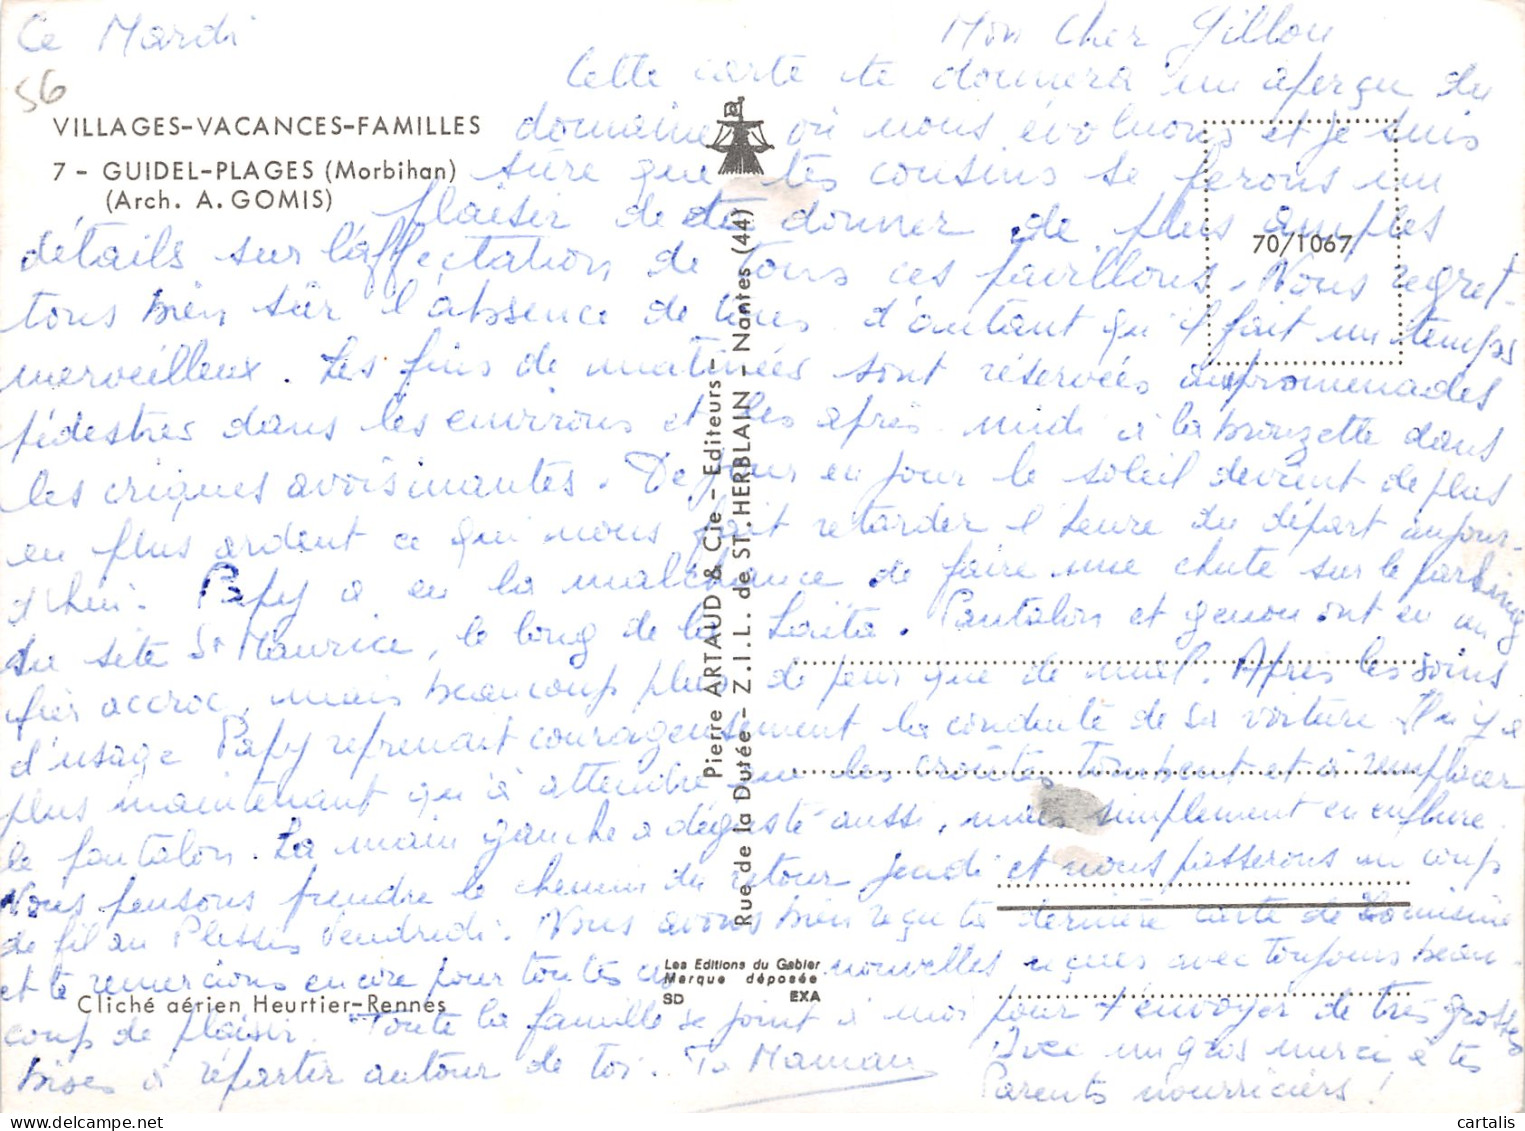 Ce Mardi
Mon Cher Gillou
56
Cette carte te donnera un aperçu du
VILLAGES-VACANCES-FAMILLES
domaine où nous évoluons et je suis
7 - GUIDEL-PLAGES (Morbihan)
sûre que tes cousins se ferons un
(Arch. A. GOMIS)
plaisir de te donner de plus amples
70/1067
détails sur l'affectation de tous ces pavillons. Nous regret-
tons bien sûr l'absence de d'autant qu'il fait un temps
merveilleux. Les fins de matinées sont réservées aux promenades
pédestres dans les environs et les après midi à la bronzette dans
les criques avoisinantes. De jour en jour le soleil devient de plus
en plus ardent ce qui nous fait retarder l'heure du départ aujour-
d'hui. Papy a eu la malchance de faire une chute sur le parking
du site St Maurice, le long de la Laïta. Pantalon et genou ont eu un
fier accroc, mais beaucoup plus de peur que de mal. Après les soins
d'usage Papy reprenait courageusement la conduite de sa voiture Il n'y a
plus maintenant qu'à attendre que les croûtes tombent et à remplacer
le pantalon. La main gauche a dégusté aussi, mais simplement en enflure.
Nous pensons prendre le chemin du retour jeudi et nous passerons un coup
de fil au Plessis Vendredi. Nous avons bien reçu ta dernière carte de
et te remercions encore pour toutes ces nouvelles reçues avec toujours beau-
coup de plaisir. Toute la famille se joint à moi pour t'envoyer de très grosses
bises à répartir autour de toi. Ta Maman
Avec un gros merci à tes
Parents nourriciers!
Pierre ARTAUD & Cie - Editeurs -
Rue de la Dutée - Z.I.L. de ST. HERBLAIN - Nantes (44)
Les Editions du Gabier
Marque déposée
SD EXA
Cliché aérien Heurtier-Rennes
cartalis